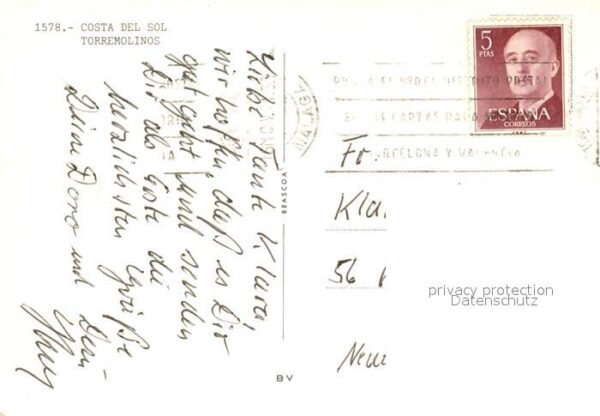 1578.- COSTA DEL SOL
TORREMOLINOS
Liebe Tante Klara,
wir hoffen, daß es Dir
gut geht und senden
Dir als Gäste die
herzlichsten Grüße
Deine Doro und
BEASCOA
BV
5
PTAS
ESPAÑA
CORREOS
CARTAS PARA
BARCELONA Y VALENCIA
Fr
Kla
56
Neu
privacy protection
Datenschutz